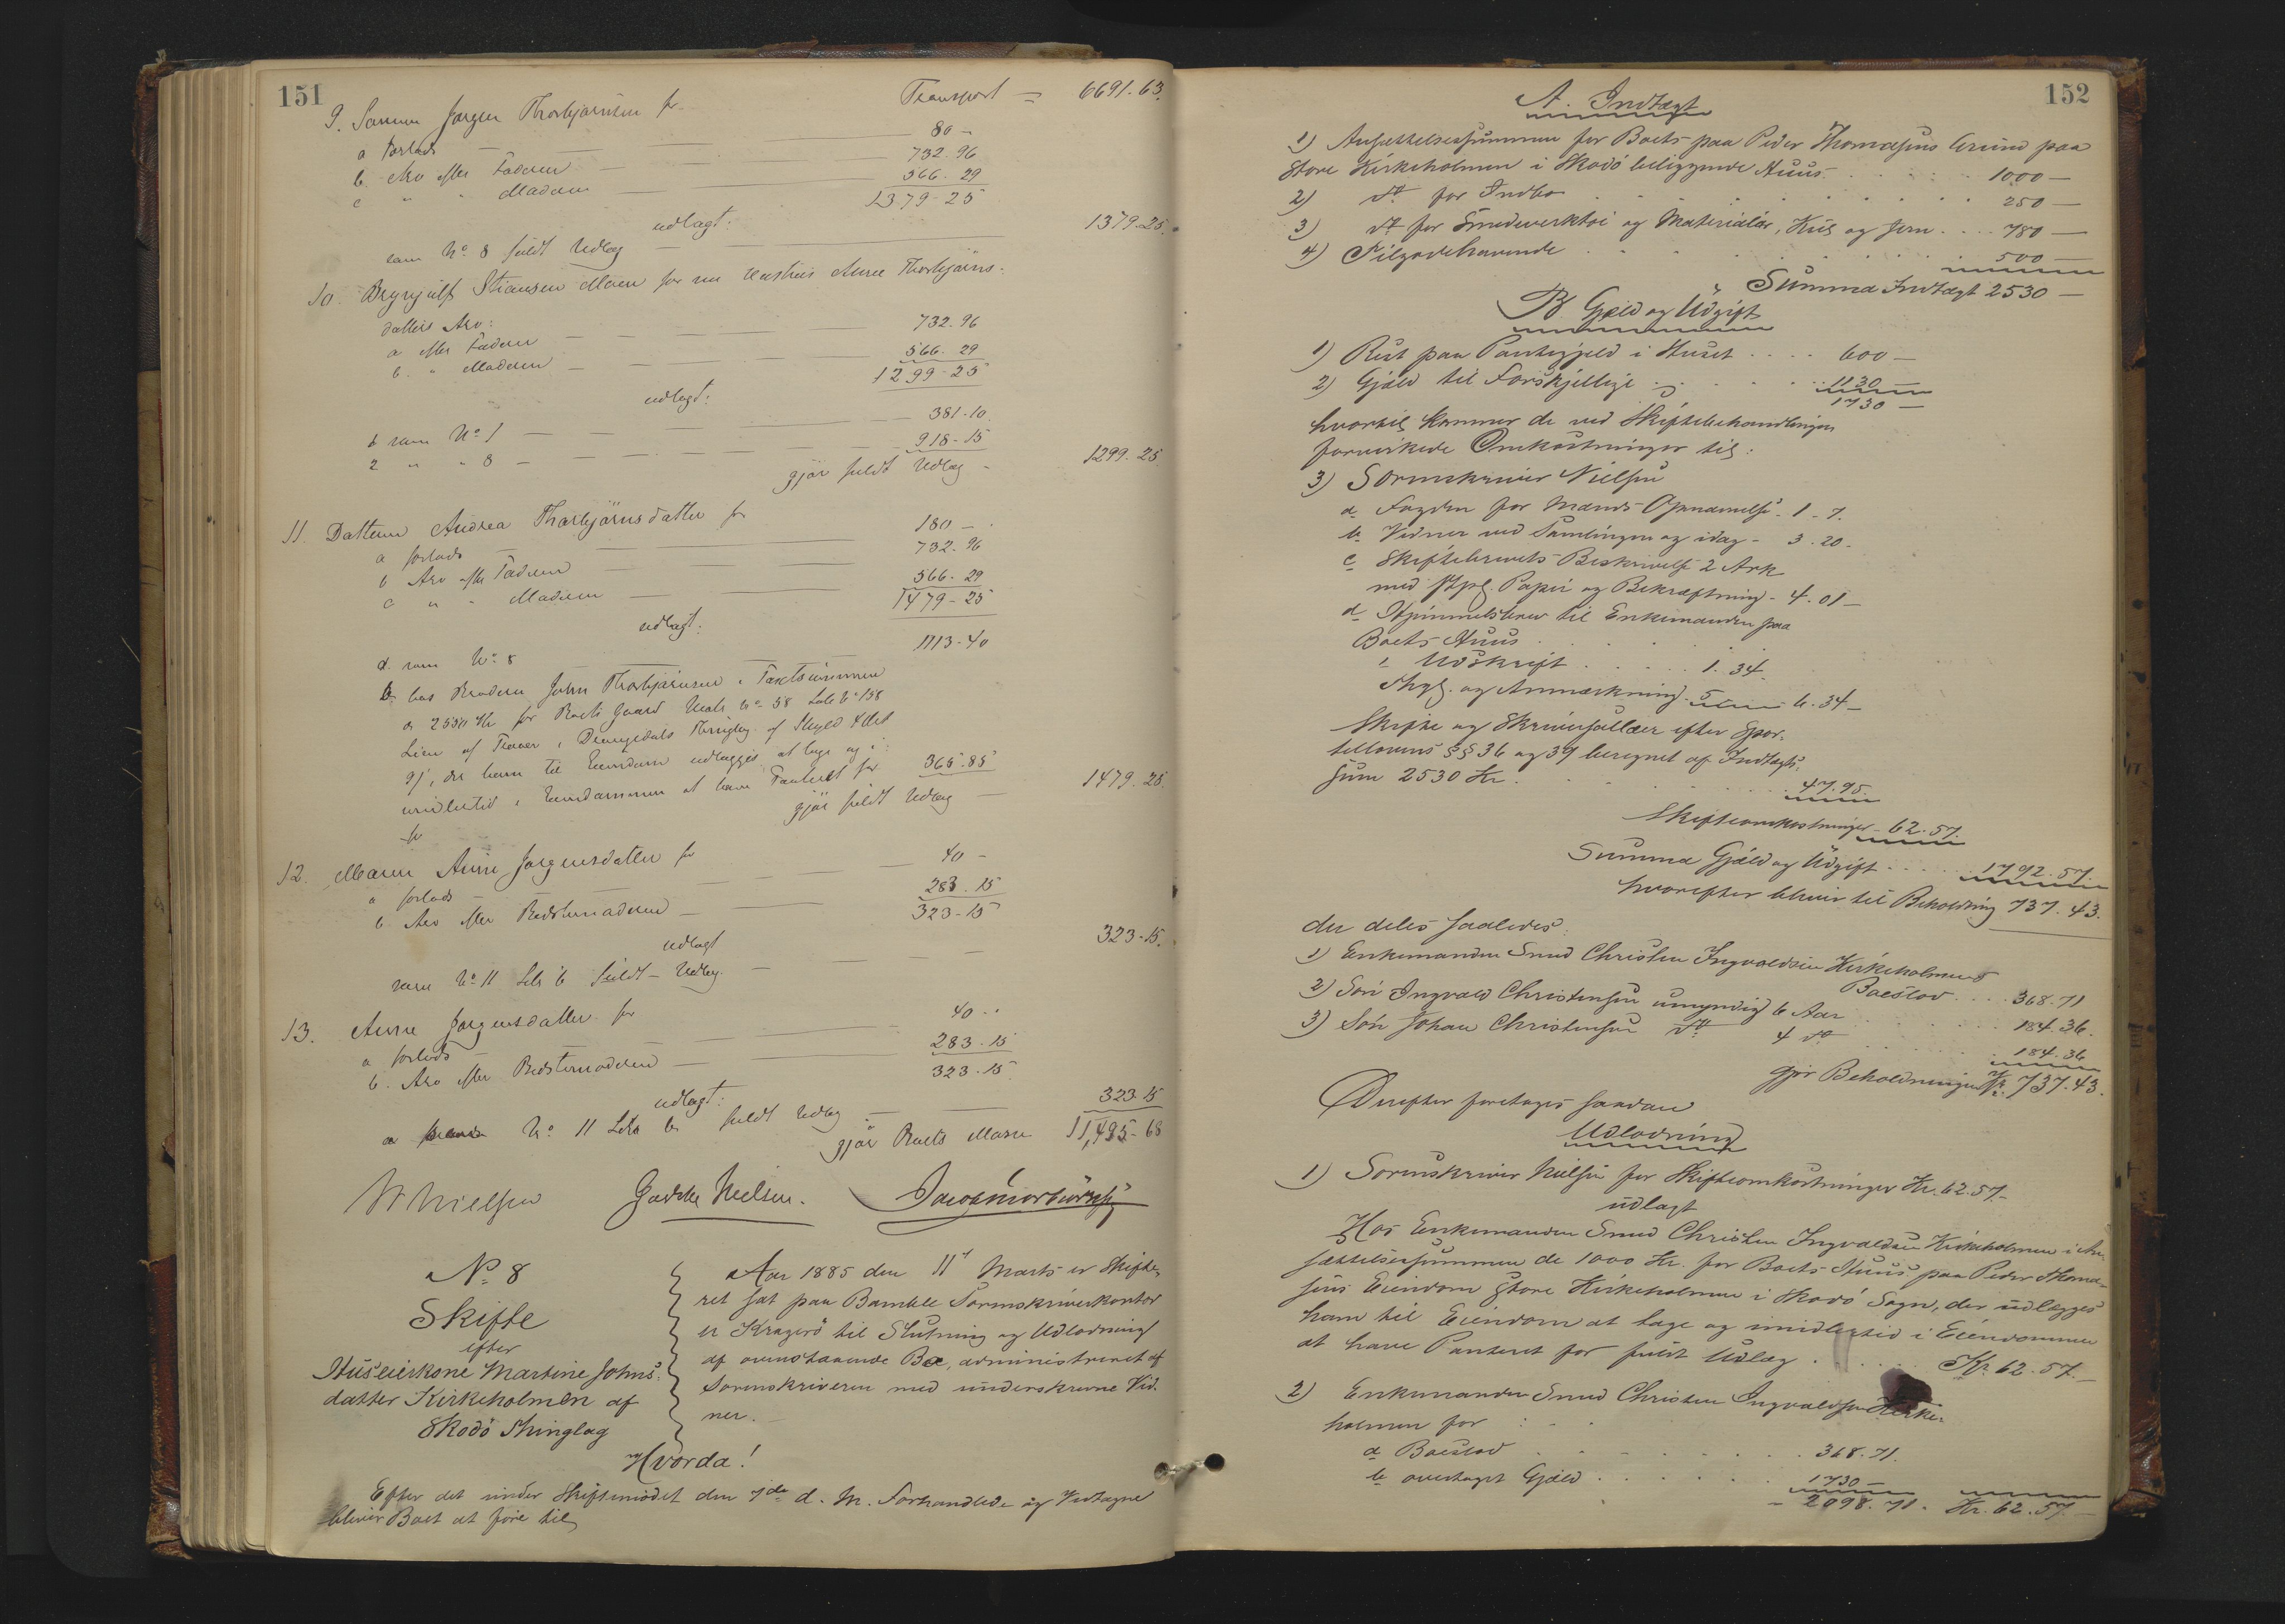 151
Transport — 6691.63.
9. Sønnen Jørgen Thorbjørnsen for
a forlods — 80 —
b. Arv efter Faderen — 732.96
c " " Moderen — 566.29
1379-25
udlagt:
sam No. 8 fuldt Udlæg — 1379-25.
10. Brynjulf Stiansen Moen for sin Hustru Anne Thorbjørns-
datters Arv:
a efter Faderen — 732.96
b. " Moderen — 566.29
1299-25
udlagt:
1 sam No. 1 — 381-10.
2 " " 8 — 918-15
gjør fuldt Udlæg — 1299.25
11. Datteren Andrea Thorbjørnsdatter for
a forlods — 180 —
b Arv efter Faderen — 732.96
c " " Moderen — 566-29
1479-25
udlagt:
a. sam No. 8 — 1113-40
b. hos Broderen John Thorbjørnsen i Taxtsummen
2550 Kr for Boets Gaard Matr. No. 58 Løbe No. 158
Lien af i Drangedals Thinglag af Skyld
, der ham til Eiendom udlægges at tage og i
imidlertid i Eiendommen at have Panteret for 365.85
for gjør fuldt Udlæg — 1479.25.
12. Maren Anne Jørgensdatter for
a forlods — 40 —
b. Arv efter Bedstemoderen — 283.15
323-15
udlagt
sam No. 11 Litr b fuldt Udlæg. — 323-15.
13. Anne Jørgensdatter for
a forlods — 40 ..
b. Arv efter Bedstemoderen — 283.15
323.15
udlagt:
a No. 11 Litr b. fuldt Udlæg — 323.15
gjør Boets Masse 11,495-68
W Nielsen Godske Nielsen.
No. 8
Skifte
efter
Huseierkone Martine Johns-
datter Kirkeholmen af
Skodö Thinglag
Aar 1885 den 11te Marts er Skifte-
ret sat paa Bamble Sorenskriverkontor
i Kragerö til Slutning og Udlodning
af ovenstaaende Bo, administreret af
Sorenskriveren med underskrevne Vid-
ner. —
Hvorda!
Efter det under Skiftemødet den 7de d. M. Forhandlede og Vedtagne
bliver Boet at føre til
152
A. Indtægt
1) Ansættelsessummen for Boets paa Peder Thomasens Grund paa
Store Kirkeholmen i Skodö beliggende Huus . . . 1000 —
2) do for Indbo . . . 250 —
3) do for Smedeverktøi og Materialer, Kul og Jern . . . 780 —
4) Tilgodehavende . . . 500 —
Summa Indtægt 2530 —
B Gjeld og Udgift
1) Rest paa Pantegjeld i Huset . . . . 600 —
2) Gjæld til Forskjellige . . . 1130 —
1730 —
hvortil kommer de ved Skiftebehandlingen
forvirkede Omkostninger til:
3) Sorenskriver Nielsen
a. Fogden for Mænds Opnævnelse - 1 - 7.
b. Vidner ved Samlingen og idag - 3.20 -
c Skiftebrevets Beskrivelse 2 Ark
med stpl. Papir og Bekræftning - 4.01 —
d Hjemmelsbrev til Enkemanden paa
Boets Huus
Udskrift . . . . . 1.34.
Thgl. og Anmærkning - 5 — 6.34 —
Skifte og Skriversallær efter Spor-
tellovens §§ 36 og 39 beregnet af Indtægts-
sum 2530 Kr . . . 47.95.
Skifteomkostninger — 62.57.
Summa Gjæld og Udgift . . . . 1792.57.
hvorefter bliver til Beholdning 737.43.
der deles saaledes:
1) Enkemanden Smed Christen Ingvaldsen Kirkeholmens
Boeslod . . . 368.71
2) Søn Ingvald Christensen umyndig 6 Aar . . . 184.36.
3) Søn Johan Christensen do 4 do . . . 184.36
gjør Beholdningen Kr. 737.43.
Derefter foretoges saadan
Udlodning
1) Sorenskriver Nielsen for Skifteomkostninger Kr. 62.57. —
udlagt
Hos Enkemanden Smed Christen Ingvaldsen Kirkeholmen i An-
sættelsessummen de 1000 Kr. for Boets Huus paa Peder Thoma-
sens Eiendom Store Kirkeholmen i Skodö Sogn, der udlægges
ham til Eiendom at tage og imidlertid i Eiendommen
at have Panteret for fuldt Udlæg . . . . Kr. 62.57. —
2) Enkemanden Smed Christen Ingvaldsen Kirke-
holmen for :
a Boeslod . . . 368.71.
b overtaget Gjæld . . . 1730 —
— 2098.71. Kr. 62.57. —